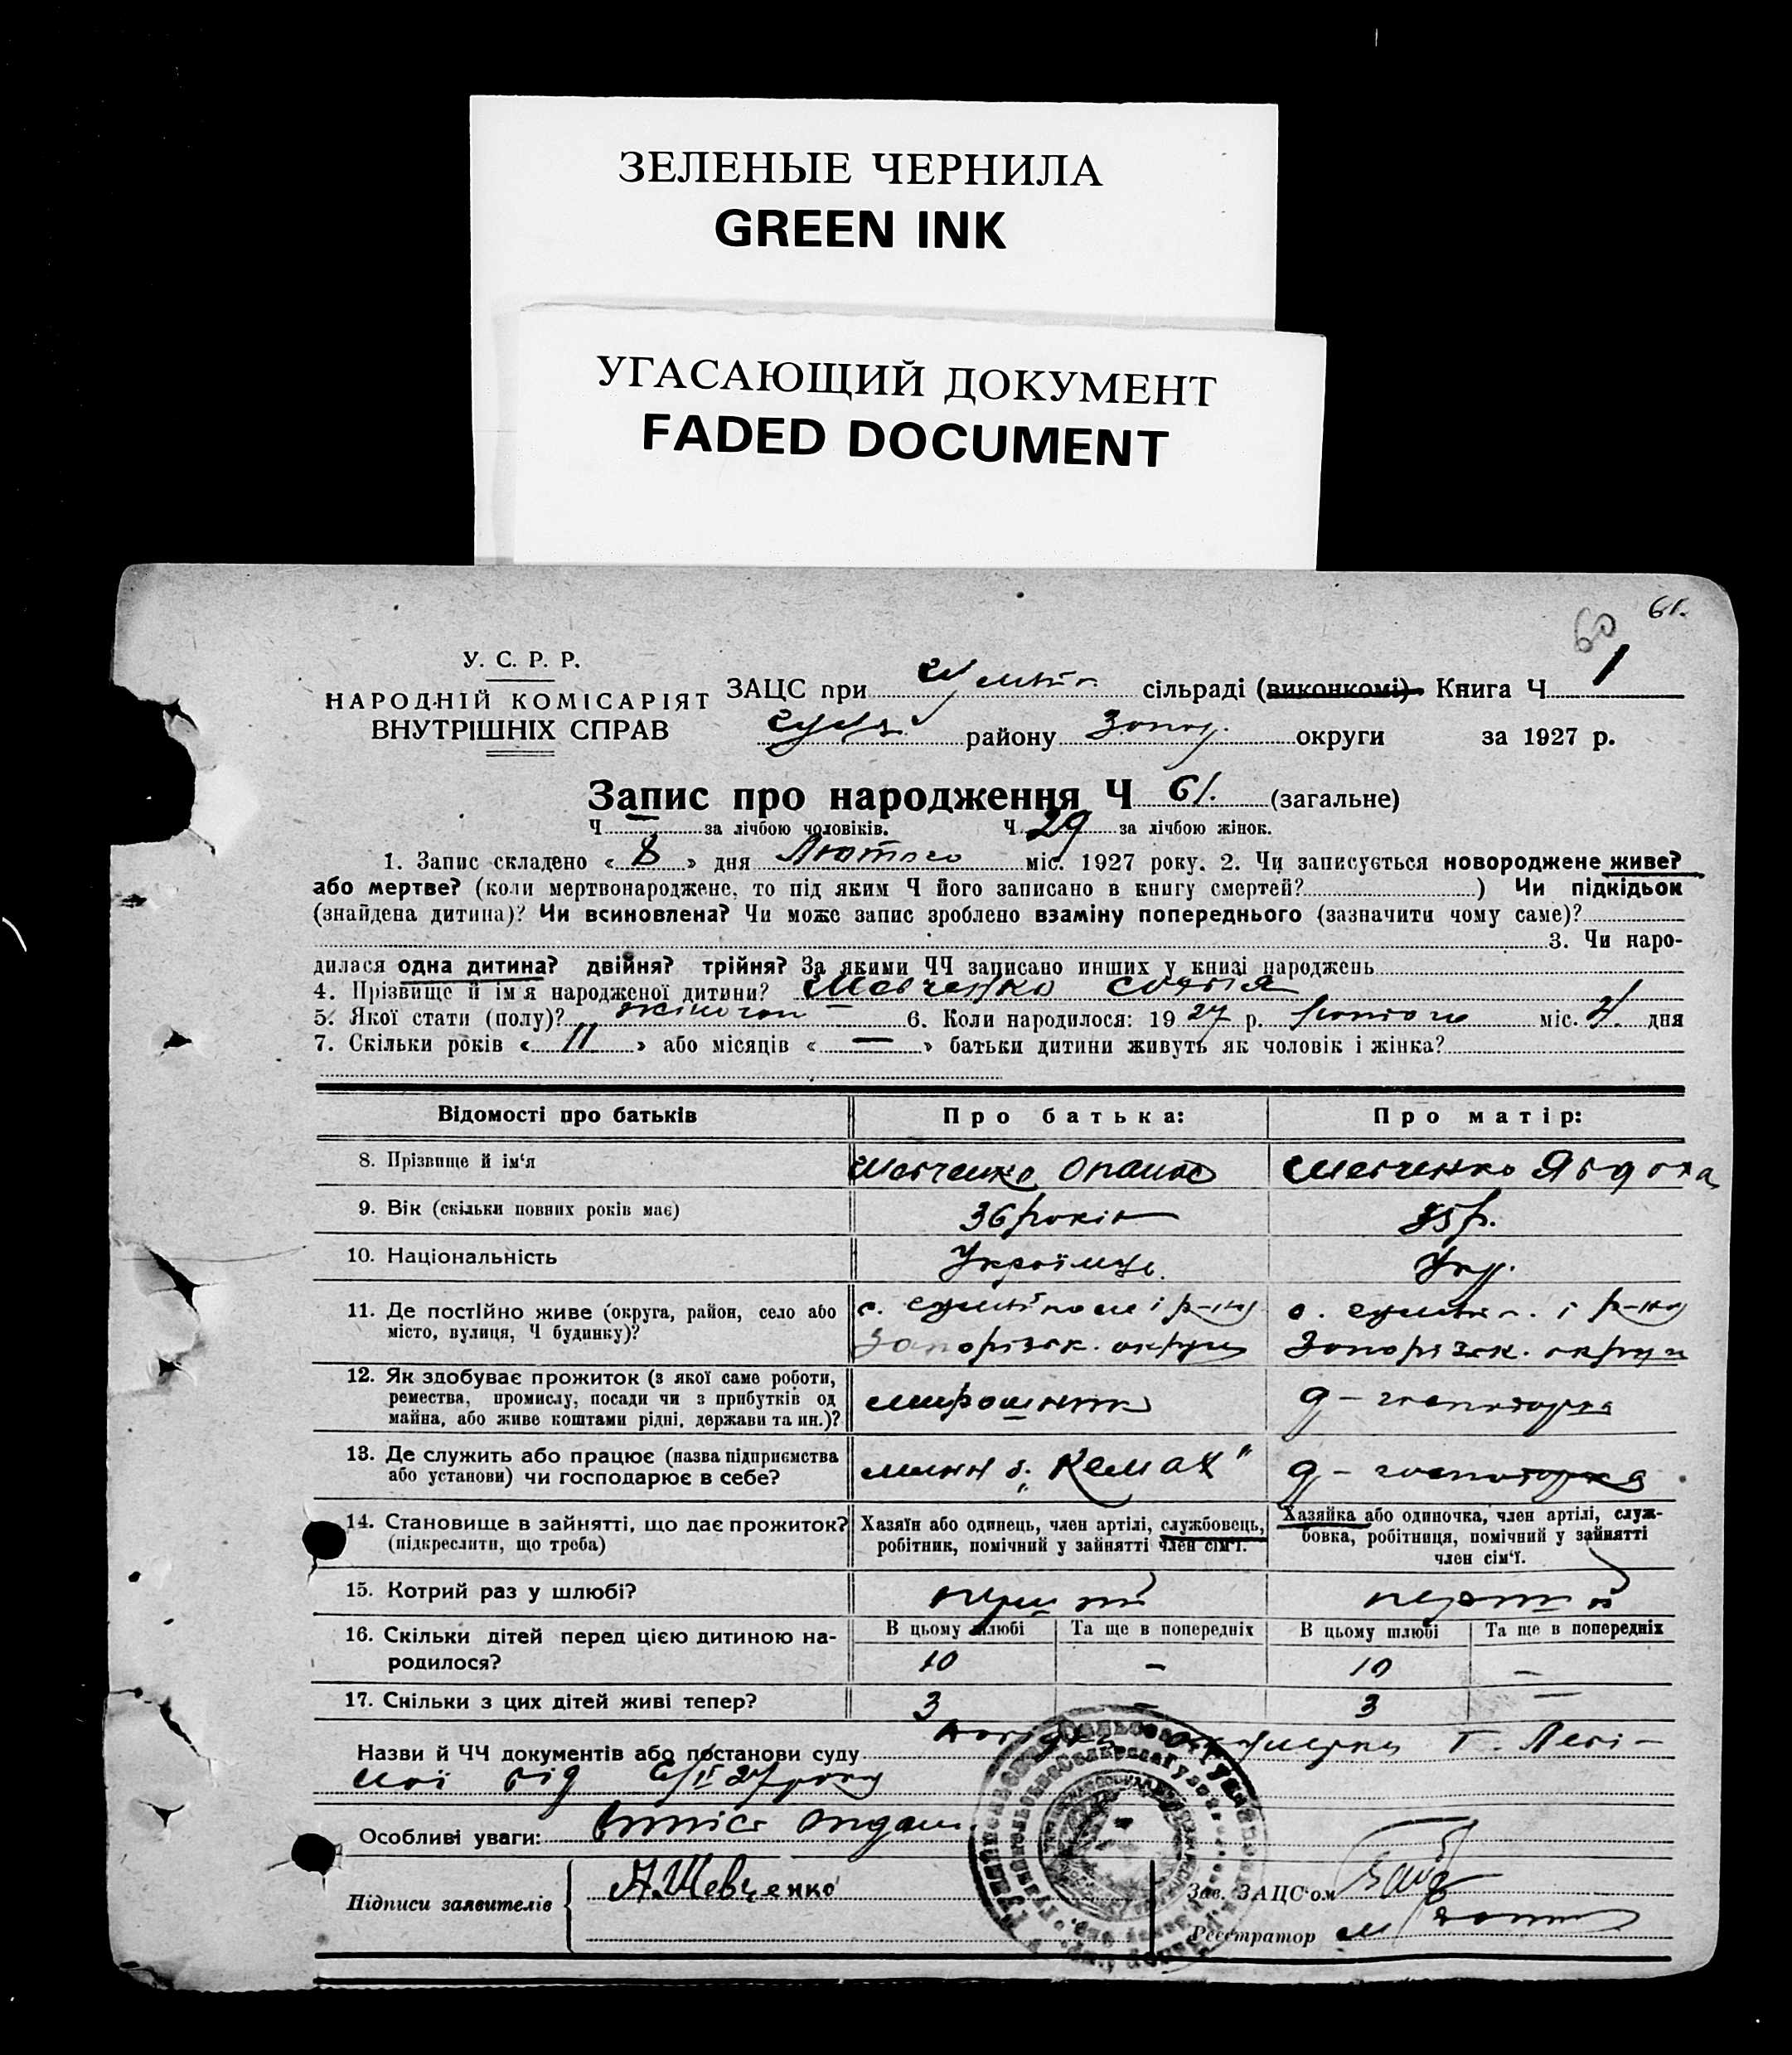 ЗЕЛЕНЫЕ ЧЕРНИЛА
GREEN INK
УГАСАЮЩИЙ ДОКУМЕНТ
FADED DOCUMENT
61.
60
У. С. Р. Р.
НАРОДНІЙ КОМІСАРІЯТ
ВНУТРІШНІХ СПРАВ
ЗАЦС при сільраді (виконкомі) Книга Ч 1
району Запор. округи за 1927 р.
Запис про народження Ч 61. (загальне)
Ч за лічбою чоловіків. Ч 29 за лічбою жінок.
1. Запис складено « 8 » дня Лютого міс. 1927 року. 2. Чи записується новороджене живе?
або мертве? (коли мертвонароджене, то під яким Ч його записано в книгу смертей? ) Чи підкідьок
(знайдена дитина)? Чи всиновлена? Чи може запис зроблено взаміну попереднього (зазначити чому саме)?
3. Чи наро-
дилася одна дитина? двійня? трійня? За якими ЧЧ записано инших у книзі народжень
4. Прізвище й ім'я народженої дитини? Шевченко Софія
5. Якої стати (полу)? жіночої 6. Коли народилося: 1927 р. Лютого міс. 4. дня
7. Скільки років « 11 » або місяців « — » батьки дитини живуть як чоловік і жінка?
Відомості про батьків Про батька: Про матір:
8. Прізвище й ім'я Шевченко Опанас Шевченко Явдоха
9. Вік (скільки повних років має) 36 років 35 р.
10. Національність Українець. Укр.
11. Де постійно живе (округа, район, село або місто, вулиця, Ч будинку)?
с. і р-ну с. і р-ну
Запорізьк. округи Запорізьк. округи
12. Як здобуває прожиток (з якої саме роботи,
ремества, промислу, посади чи з прибутків од
майна, або живе коштами рідні, держави та ин.)? мирошник д-господарка
13. Де служить або працює (назва підприємства
або установи) чи господарює в себе? млин б. „Кемах" д-господарка
14. Становище в зайнятті, що дає прожиток?
(підкреслити, що треба)
Хазяїн або одинець, член артілі, службовець,
робітник, помічний у зайнятті член сім'ї.
Хазяйка або одиночка, член артілі, служ-
бовка, робітниця, помічний у зайнятті
член сім'ї.
15. Котрий раз у шлюбі? перший перший
16. Скільки дітей перед цією дитиною на-
родилося?
В цьому шлюбі Та ще в попередніх В цьому шлюбі Та ще в попередніх
10 – 10 –
17. Скільки з цих дітей живі тепер? 3 – 3 –
Назви й ЧЧ документів або постанови суду Г. Леві-
ної від 6/II 27 року
Особливі уваги:
Підписи заявителів А. Шевченко
Зав. ЗАЦС'ом
Реєстратор